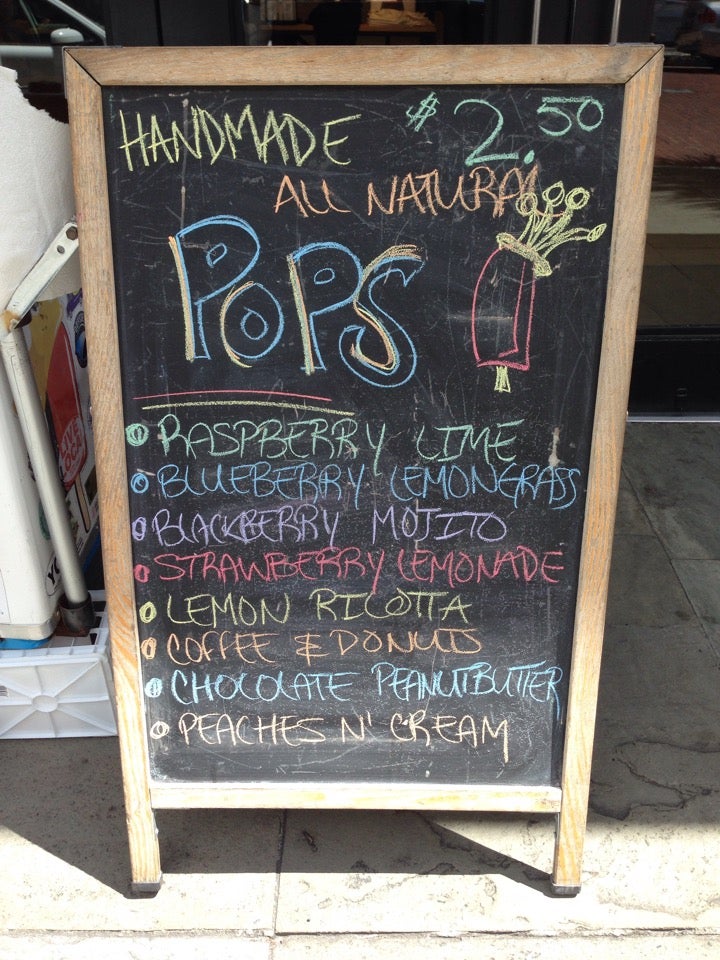 HANDMADE $2.50
ALL NATURAL
POPS
RASPBERRY LIME
BLUEBERRY LEMONGRASS
BLACKBERRY MOJITO
STRAWBERRY LEMONADE
LEMON RICOTTA
COFFEE & DONUTS
CHOCOLATE PEANUTBUTTER
PEACHES N' CREAM